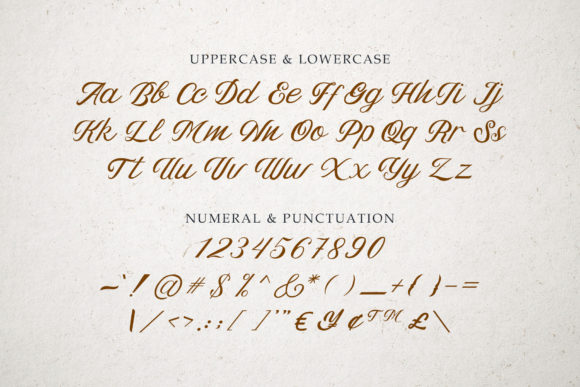 UPPERCASE & LOWERCASE
Aa Bb Cc Dd Ee Ff Gg Hh Ii Jj
Kk Ll Mm Nn Oo Pp Qq Rr Ss
Tt Uu Vv Ww Xx Yy Zz
NUMERAL & PUNCTUATION
1234567890
~`!@#$%^&*()_+{}-=
\/<>.:;[]'"€¥¢™£\